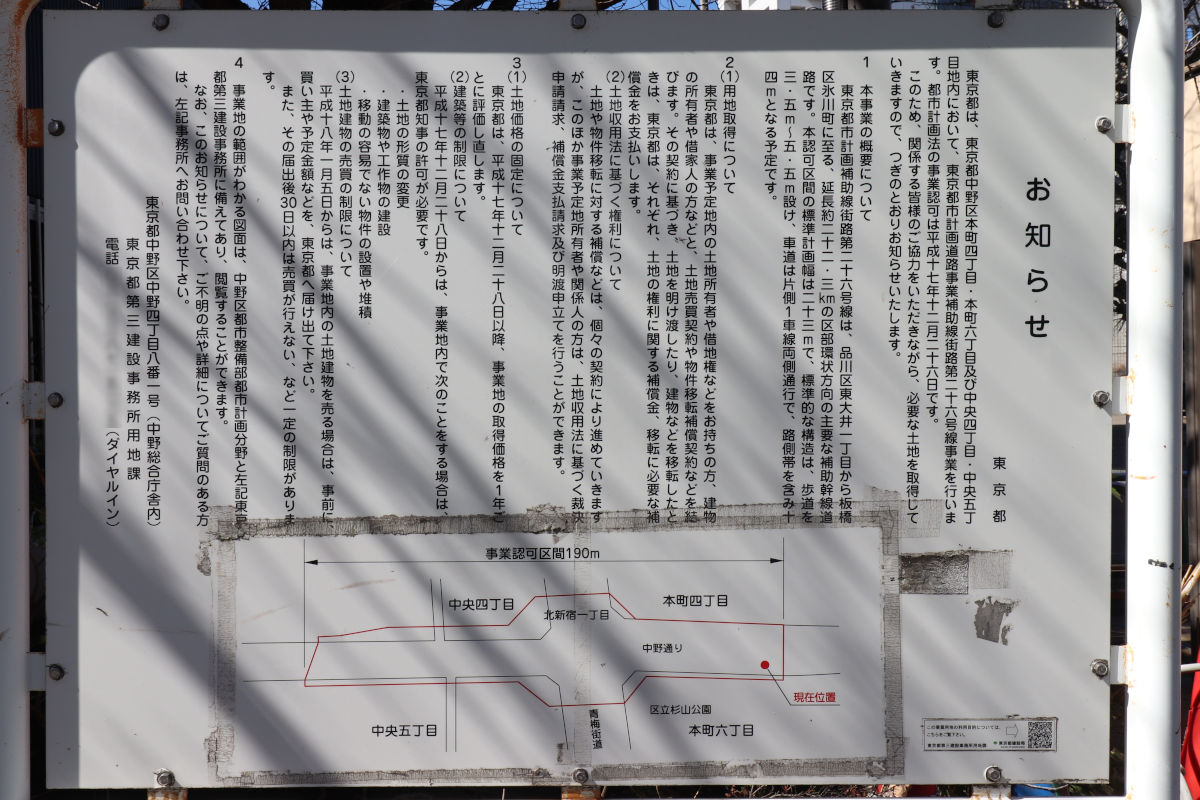 お知らせ
東京都
東京都は、東京都中野区本町四丁目・本町六丁目及び中央四丁目・中央五丁
目地内において、東京都市計画道路事業補助線街路第二十六号線事業を行いま
す。都市計画法の事業認可は平成十七年十二月二十六日です。
このため、関係する皆様のご協力をいただきながら、必要な土地を取得して
いきますので、つぎのとおりお知らせいたします。
1 本事業の概要について
東京都市計画補助線街路第二十六号線は、品川区東大井一丁目から板橋
区氷川町に至る、延長約二十二・三kmの区部環状方向の主要な補助幹線道
路です。本認可区間の標準計画幅は二十三mで、標準的な構造は、歩道を
三・五m〜五・五m設け、車道は片側1車線両側通行で、路側帯を含み十
四mとなる予定です。
2
(1)用地取得について
東京都は、事業予定地内の土地所有者や借地権などをお持ちの方、建物
の所有者や借家人の方などと、土地売買契約や物件移転補償契約などを結
びます。その契約に基づき、土地を明け渡したり、建物などを移転したと
きは、東京都は、それぞれ、土地の権利に関する補償金、移転に必要な補
償金をお支払いします。
(2)土地収用法に基づく権利について
土地や物件移転に対する補償などは、個々の契約により進めていきます
が、このほか事業予定地所有者や関係人の方は、土地収用法に基づく裁決
申請請求、補償金支払請求及び明渡申立てを行うことができます。
3
(1)土地価格の固定について
東京都は、平成十七年十二月二十八日以降、事業地の取得価格を1年ご
とに評価し直します。
(2)建築等の制限について
平成十七年十二月二十八日からは、事業地内で次のことをする場合は、
東京都知事の許可が必要です。
・土地の形質の変更
・建築物や工作物の建設
・移動の容易でない物件の設置や堆積
(3)土地建物の売買の制限について
平成十八年一月五日からは、事業地内の土地建物を売る場合は、事前に
買い主や予定金額などを、東京都へ届け出て下さい。
また、その届出後30日以内は売買が行えない、など一定の制限がありま
す。
4 事業地の範囲がわかる図面は、中野区都市整備部都市計画分野と左記東京
都第三建設事務所に備えてあり、閲覧することができます。
なお、このお知らせについて、ご不明の点や詳細についてご質問のある方
は、左記事務所へお問い合わせ下さい。
東京都中野区中野四丁目八番一号（中野総合庁舎内）
東京都第三建設事務所用地課
電話 （ダイヤルイン）
事業認可区間190m
中央四丁目
北新宿一丁目
本町四丁目
中野通り
現在位置
区立杉山公園
中央五丁目
青梅街道
本町六丁目
この事業用地の利用目的については、
こちらをご覧下さい。
東京都第三建設事務所用地課
東京都建設局